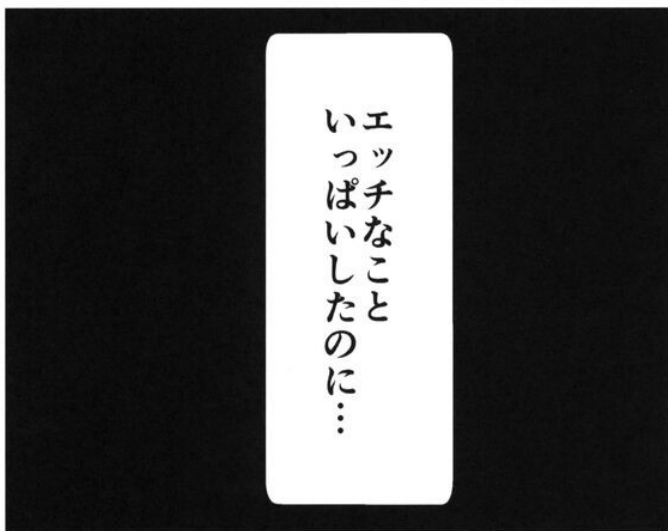 エッチなこと
いっぱいしたのに…